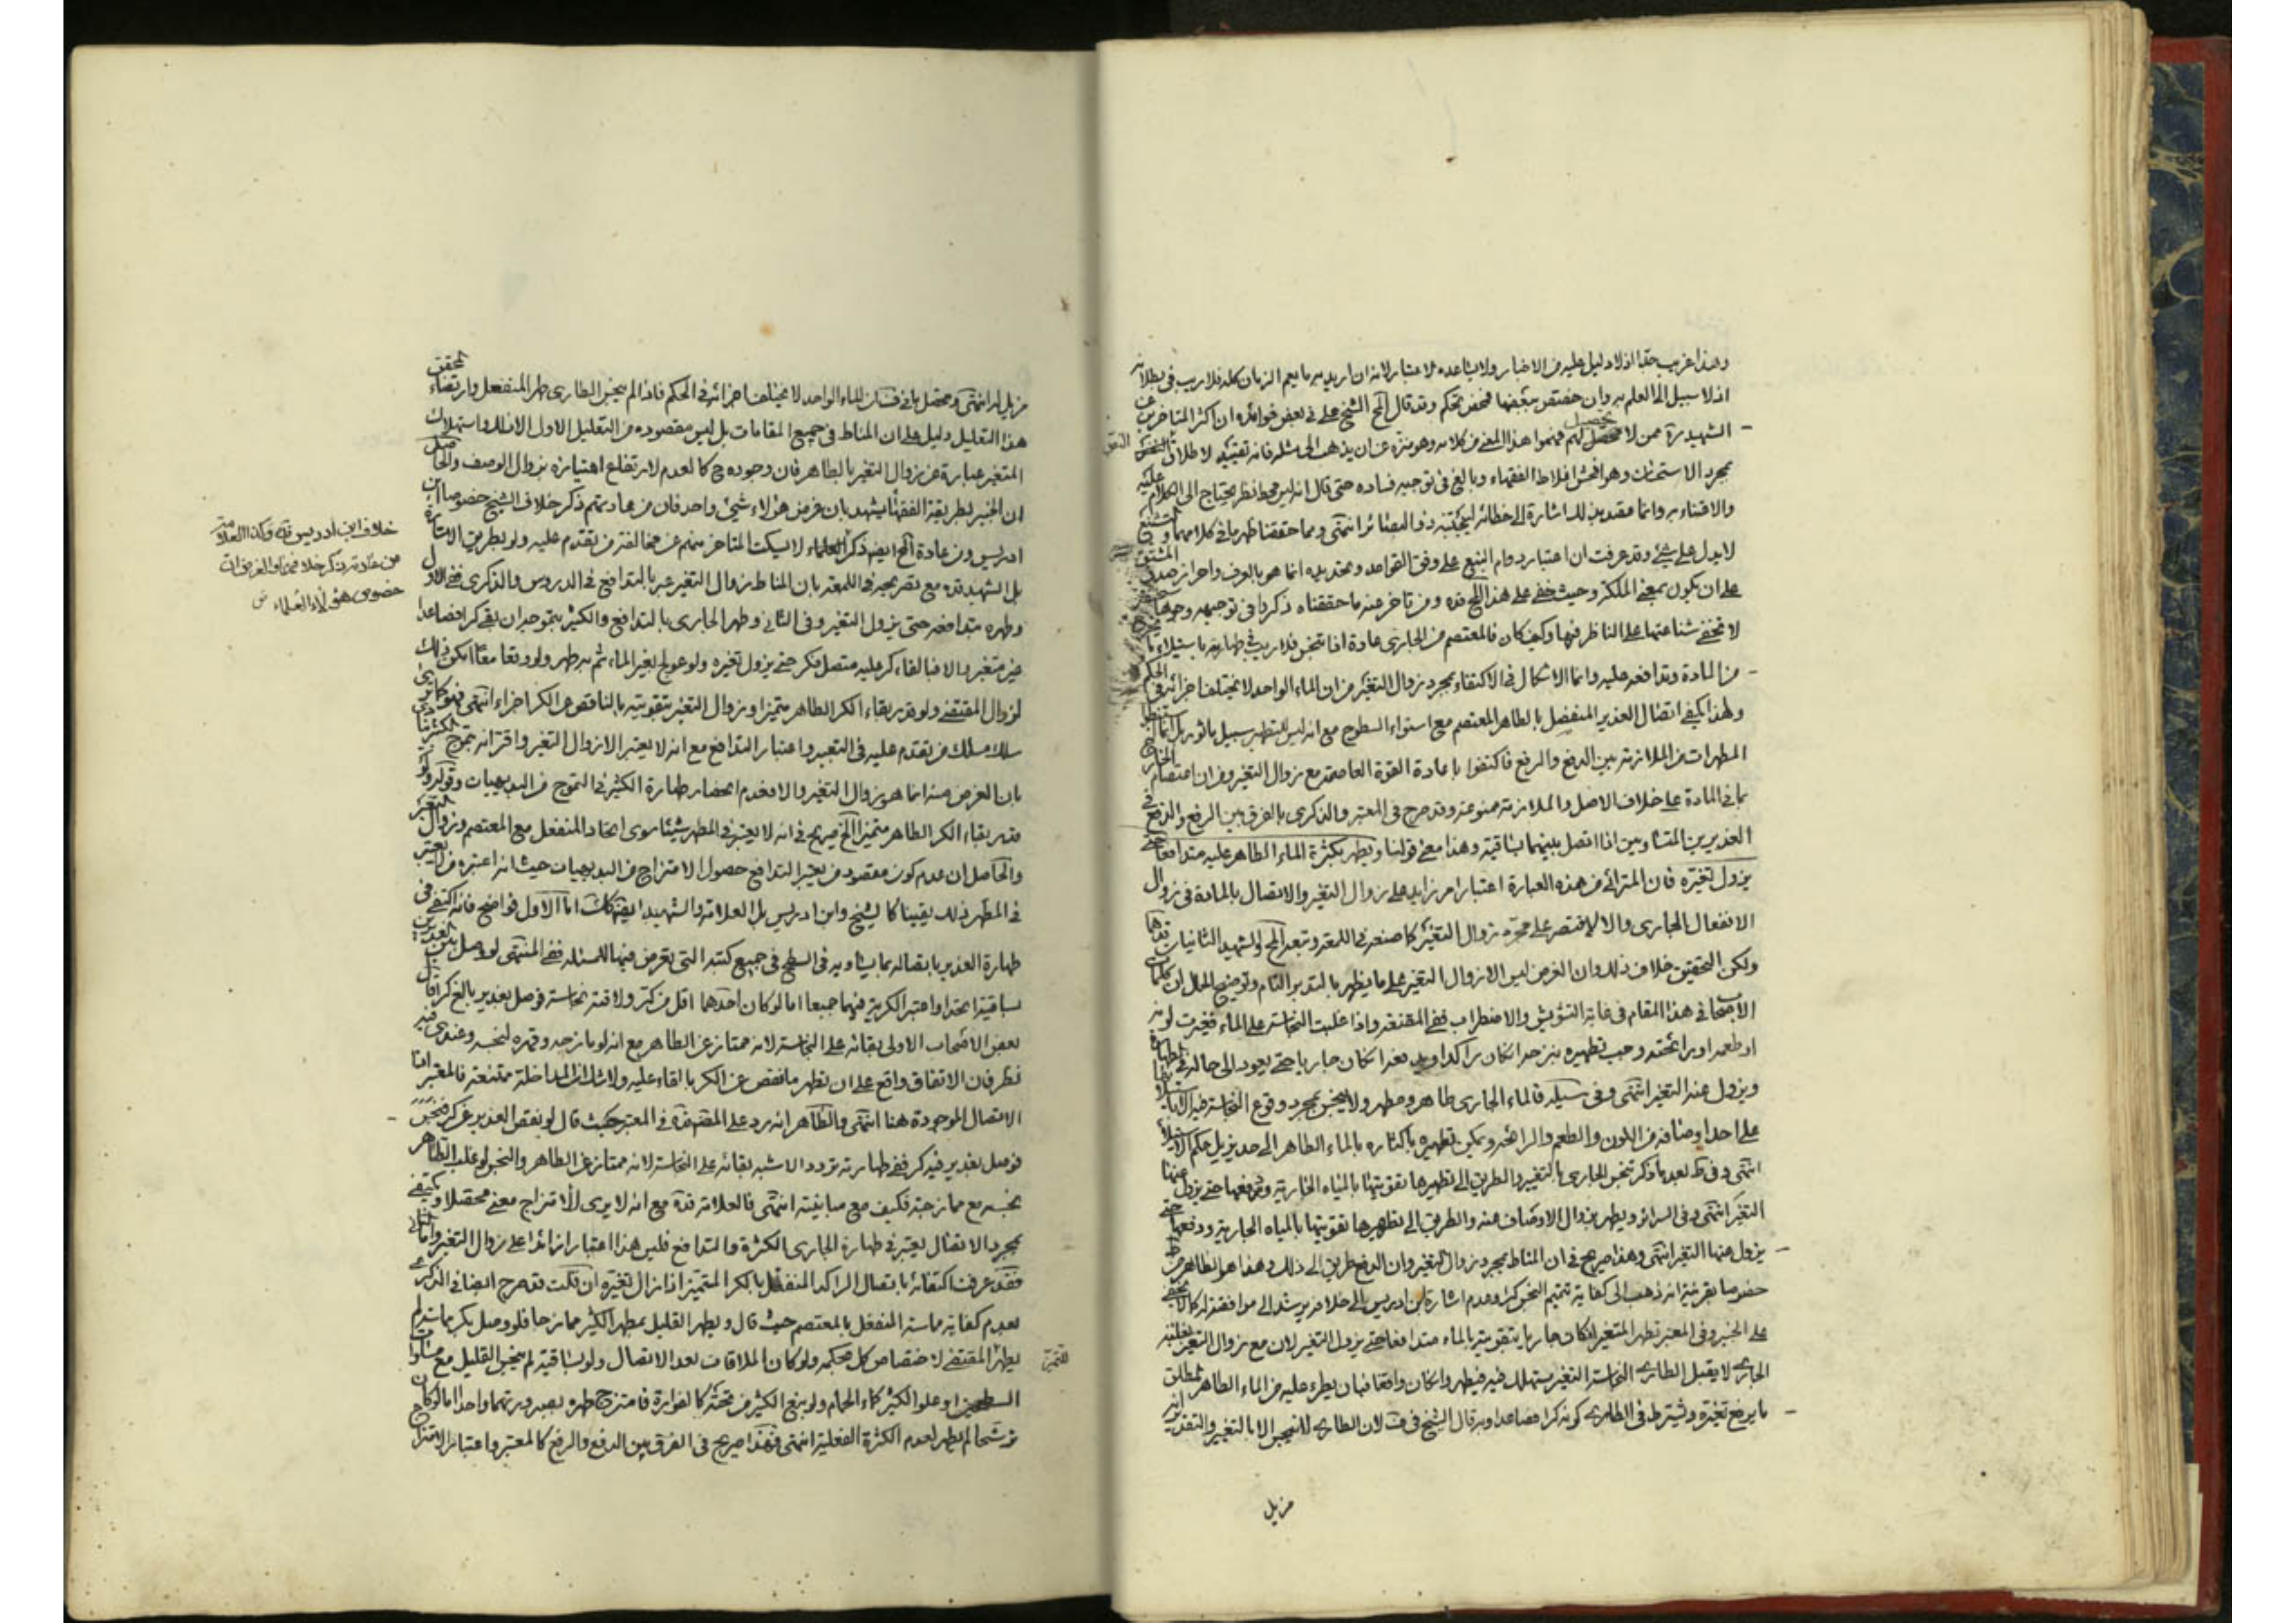 وهذا غريب جدا اذ لا دليل عليه من الاخبار ولا يساعده الاعتبار لانه ان اريد به ما يعم الزمان كله فلا ريب في بطلانه
اذ لا سبيل الى العلم به وان خصّ ببعضها فمحض تحكم وقد قال الشيخ علي في بعض فوائده ان اكثر المتأخرين عن
الشهيد ره ممن لا تحصيل لهم فهموا هذا المعنى من كلامه وهو منزه عن ان يذهب الى مثله فانه تقييد لاطلاق النص
بمجرد الاستحسان وهو افحش اغلاط الفقهاء وبالغ في توجيه فساده حتى قال انه ليس محط نظر يحتاج الى الكلام عليه
والاعتناء به وانما قصدنا الاشارة الى خطائه ليجتنبه ذو البصائر انتهى ومما حققنا ظهر ما في كلامهما والتشنيع
لا يدل على شئ وقد عرفت ان اعتبار دوام النبع على وفق القواعد وتحديده انما هو بالعرف واحراز صدق المشتق
على ان يكون بمعنى الملكة وحيث خفي على هذا الشيخ قده ومن تاخر عنه ما حققناه ذكروا في توجيهه وجوها
لا تخفى شناعتها على الناظر فيها وكيف كان فالمعتصم من الجاري عادة اذا تنجس فلا ريب في طهارته باستيلاء
من المادة وتدافعه عليه وانما الاشكال في الاكتفاء بمجرد زوال التغير من ان الماء الواحد لا يختلف اجزائه في الحكم
ولهذا يكفي اتصال الغدير المنفصل بالطاهر المعتصم مع استواء السطوح مع انه ليس للتطهير سبيل ماثور بل انما
المطهرات من الملازمة بين الدفع والرفع فاكتفوا باعادة القوة العاصمة مع زوال التغير ومن ان اعتصام الجاري
بما في المادة على خلاف الاصل والملازمة ممنوعة وقد صرح في المعتبر والذكرى بالفرق بين الرفع والدفع في
الغديرين المتساويين اذا اتصل بينهما بساقية وهذا معنى قولنا ويطهر بكثرة الماء الطاهر عليه متدافعا حتى
يزول تغيره فان المترائى من هذه العبارة اعتبار امر زايد على زوال التغير والاتصال بالمادة في زوال
الانفعال الجاري والا لاقتصر على مجرد زوال التغير كما صنعه في اللمعة وتبعه الشهيد الثاني
ولكن التحقيق خلاف ذلك وان الغرض ليس الا زوال التغير على ما يظهر بالتدبر التام وتوضيح الحال ان كلمات
الاصحاب في هذا المقام في غاية التشويش والاضطراب ففي المقنعة واذا غلبت النجاسة على الماء فغيرت لونه
او طعمه او رائحته وجب تطهيره بنزحه ان كان راكدا وبدفعه ان كان جاريا حتى يعود الى حاله في الطهارة
ويزول عنه التغير انتهى وفي الوسيلة فالماء الجاري طاهر ومطهر ولا ينجس بمجرد وقوع النجاسة فيه الا باستيلائها
على احد اوصافه من اللون والطعم والرائحة ويمكن تطهيره باكثاره بالماء الطاهر الى حد يزيل حكم الاستيلاء
انتهى وفي ط بعد ما ذكر تنجس الجاري بالتغير والطريق الى تطهيرها تقويتها بالمياه الجارية ودفعها حتى يزول عنها
التغير انتهى وفي السرائر ويطهر بزوال الاوصاف عنه والطريق الى تطهيرها تقويتها بالمياه الجارية ودفعها حتى
يزول عنها التغير انتهى وهذا صريح في ان المناط مجرد زوال التغير وان الدفع طريق الى ذلك وهذا هو الظاهر من
خصوصا بقرينة انه ذهب الى كفاية تتميم النجس كرا وعدم اشارة ابن ادريس الى خلافه يرشد الى موافقته له كما لا يخفى
على الخبير وفي المعتبر تطهر المتغير ان كان جاريا بتقويته بالماء متدافعا حتى يزول التغير لان مع زوال التغير بغلبة
الجاري لا يقبل الطاري النجاسة والتغير مستهلك فيه فيطهر وان كان واقفا فبان يطرء عليه من الماء الطاهر المطلق
ما يرفع تغيره ويشترط في الطاري كونه كرا فصاعدا وبه قال الشيخ في ف لان الطاري لا ينجس الا بالتغير والتقدير انه
مزيل
مزيل له انتهى ومحصل ما في ف ان الماء الواحد لا يختلف اجزائه في الحكم فاذا لم ينجس الطاري طهر المنفعل وارتضاء المحقق
هذا التعليل دليل على ان المناط في جميع المقامات بل ليس مقصوده من التعليل الاول الا ذلك واستهلاك
المتغير عبارة عن زوال التغير بالطاهر فان وجوده ح كالعدم لارتفاع امتيازه بزوال الوصف والحاصل
ان الخبير بطريقة الفقهاء يشهد بان غرض هؤلاء شئ واحد فان من عادتهم ذكر خلاف الشيخ خصوصا ابن
ادريس ومن عادة ايضا ذكر العلماء لا يسكت المتاخر منهم عن مخالفة من تقدم عليه ولو بطريق الاشارة
بل الشهيد قده مع تصريحه في اللمعة بان المناط زوال التغير عبر بالتدافع في الدروس والذكرى ففي الاول
وطهره بتدافعه حتى يزول التغير وفي الثاني وطهر الجاري بالتدافع والكثير بتموجه ان بقي كر فصاعدا
غير متغير والا فبالقاء كر عليه متصل فكر حتى يزول تغيره ولو عولج بغير الماء ثم به طهر ولو وقعا معا امكن ذلك
لزوال المقتضي ولو قدر بقاء الكر الطاهر متميزا وزوال التغير بتقويته بالناقص عن الكر اجزاء انتهى
سلك مسلك من تقدم عليه في التعبير واعتبار التدافع مع انه لا يعتبر الا زوال التغير واقترانه بتموج
بان الغرض منه انما هو زوال التغير والا فعدم انحصار طهارة الكثير في التموج من البديهيات وقوله ولو
قدر بقاء الكر الطاهر متميزا الخ صريح في انه لا يعتبر في المطهر شيئا سوى اتحاد المنفعل مع المعتصم وزوال التغير
والحاصل ان عدم كون مقصود من يعتبر التدافع حصول الامتزاج من البديهيات حيث انه اعتبره من لا يعتبر
في المطهر ذلك يقينا كالشيخ وابن ادريس بل العلامة والشهيد ايضا كك اما الاول فواضح فانه اكتفى في
طهارة الغدير باتصاله بما يساويه في السطح في جميع كتبه التي تعرض فيها للمسئلة ففي المنتهى لو وصل بين الغديرين
بساقية اتحدا واعتبر الكرية فيهما جميعا اما لو كان احدهما اقل من كر ولاقته نجاسة فوصل بغدير بالغ كرا قال
بعض الاصحاب الاولى بقائه على النجاسة لانه ممتاز عن الطاهر مع انه لو مازجه وقهره لنجسه وعندي فيه
نظر فان الاتفاق واقع على ان تطهير ما نقص عن الكر بالقاء كر عليه ولا شك ان المداخلة ممتنعة فالمعتبر اذا
الاتصال الموجودة هنا انتهى والظاهر انه رد على المحقق قده في المعتبر حيث قال لو نقص الغدير عن كر فنجس
فوصل بغدير فيه كر ففي طهارته تردد الاشبه بقائه على النجاسة لانه ممتاز عن الطاهر والنجس لو غلب الطاهر
نجسه مع ممازجته فكيف مع مباينته انتهى فالعلامة قده مع انه لا يرى للامتزاج معنى محصلا ويكتفي
بمجرد الاتصال يعتبر في طهارة الجاري الكثرة والتدافع فليس هذا اعتبارا زائدا على زوال التغير واما الثاني
فقد عرفت اكتفائه باتصال الراكد المنفعل بالكر المتميز اذا زال تغيره ان قلت قد صرح ايضا في الذكرى
بعدم كفاية مماسة المنفعل بالمعتصم حيث قال ويطهر القليل بمطهر الكثير ممازجا فلو وصل بكر مماسة لم
يطهر للتميز المقتضي لاختصاص كل بحكمه ولو كان الملاقات بعد الاتصال ولو بساقية لم ينجس القليل مع مساواة
السطحين او علو الكثير كماء الحمام ولو نبع الكثير من تحته كالفوارة فامتزج طهره بصيرورتهما واحدا اما لو كان
ترشحا لم يطهر لعدم الكثرة الفعلية انتهى فهذا صريح في الفرق بين الدفع والرفع كالمعتبر واعتبار الامتزاج
خلاف ابن ادريس قده وكذا العلامة
من عادته ذكر خلاف
خصوص هؤلاء العلماء